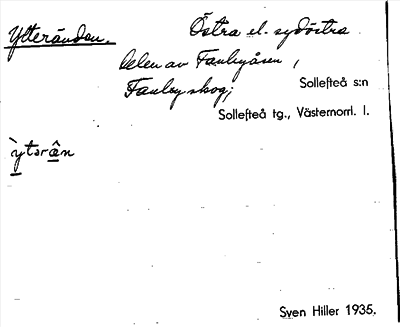 Ytterändan. Östra el. sydöstra
delen av Fanbyåsen,
Fanbyskog;
Sollefteå s:n
Sollefteå tg., Västernorrl. l.
`ytərân
Sven Hiller 1935.